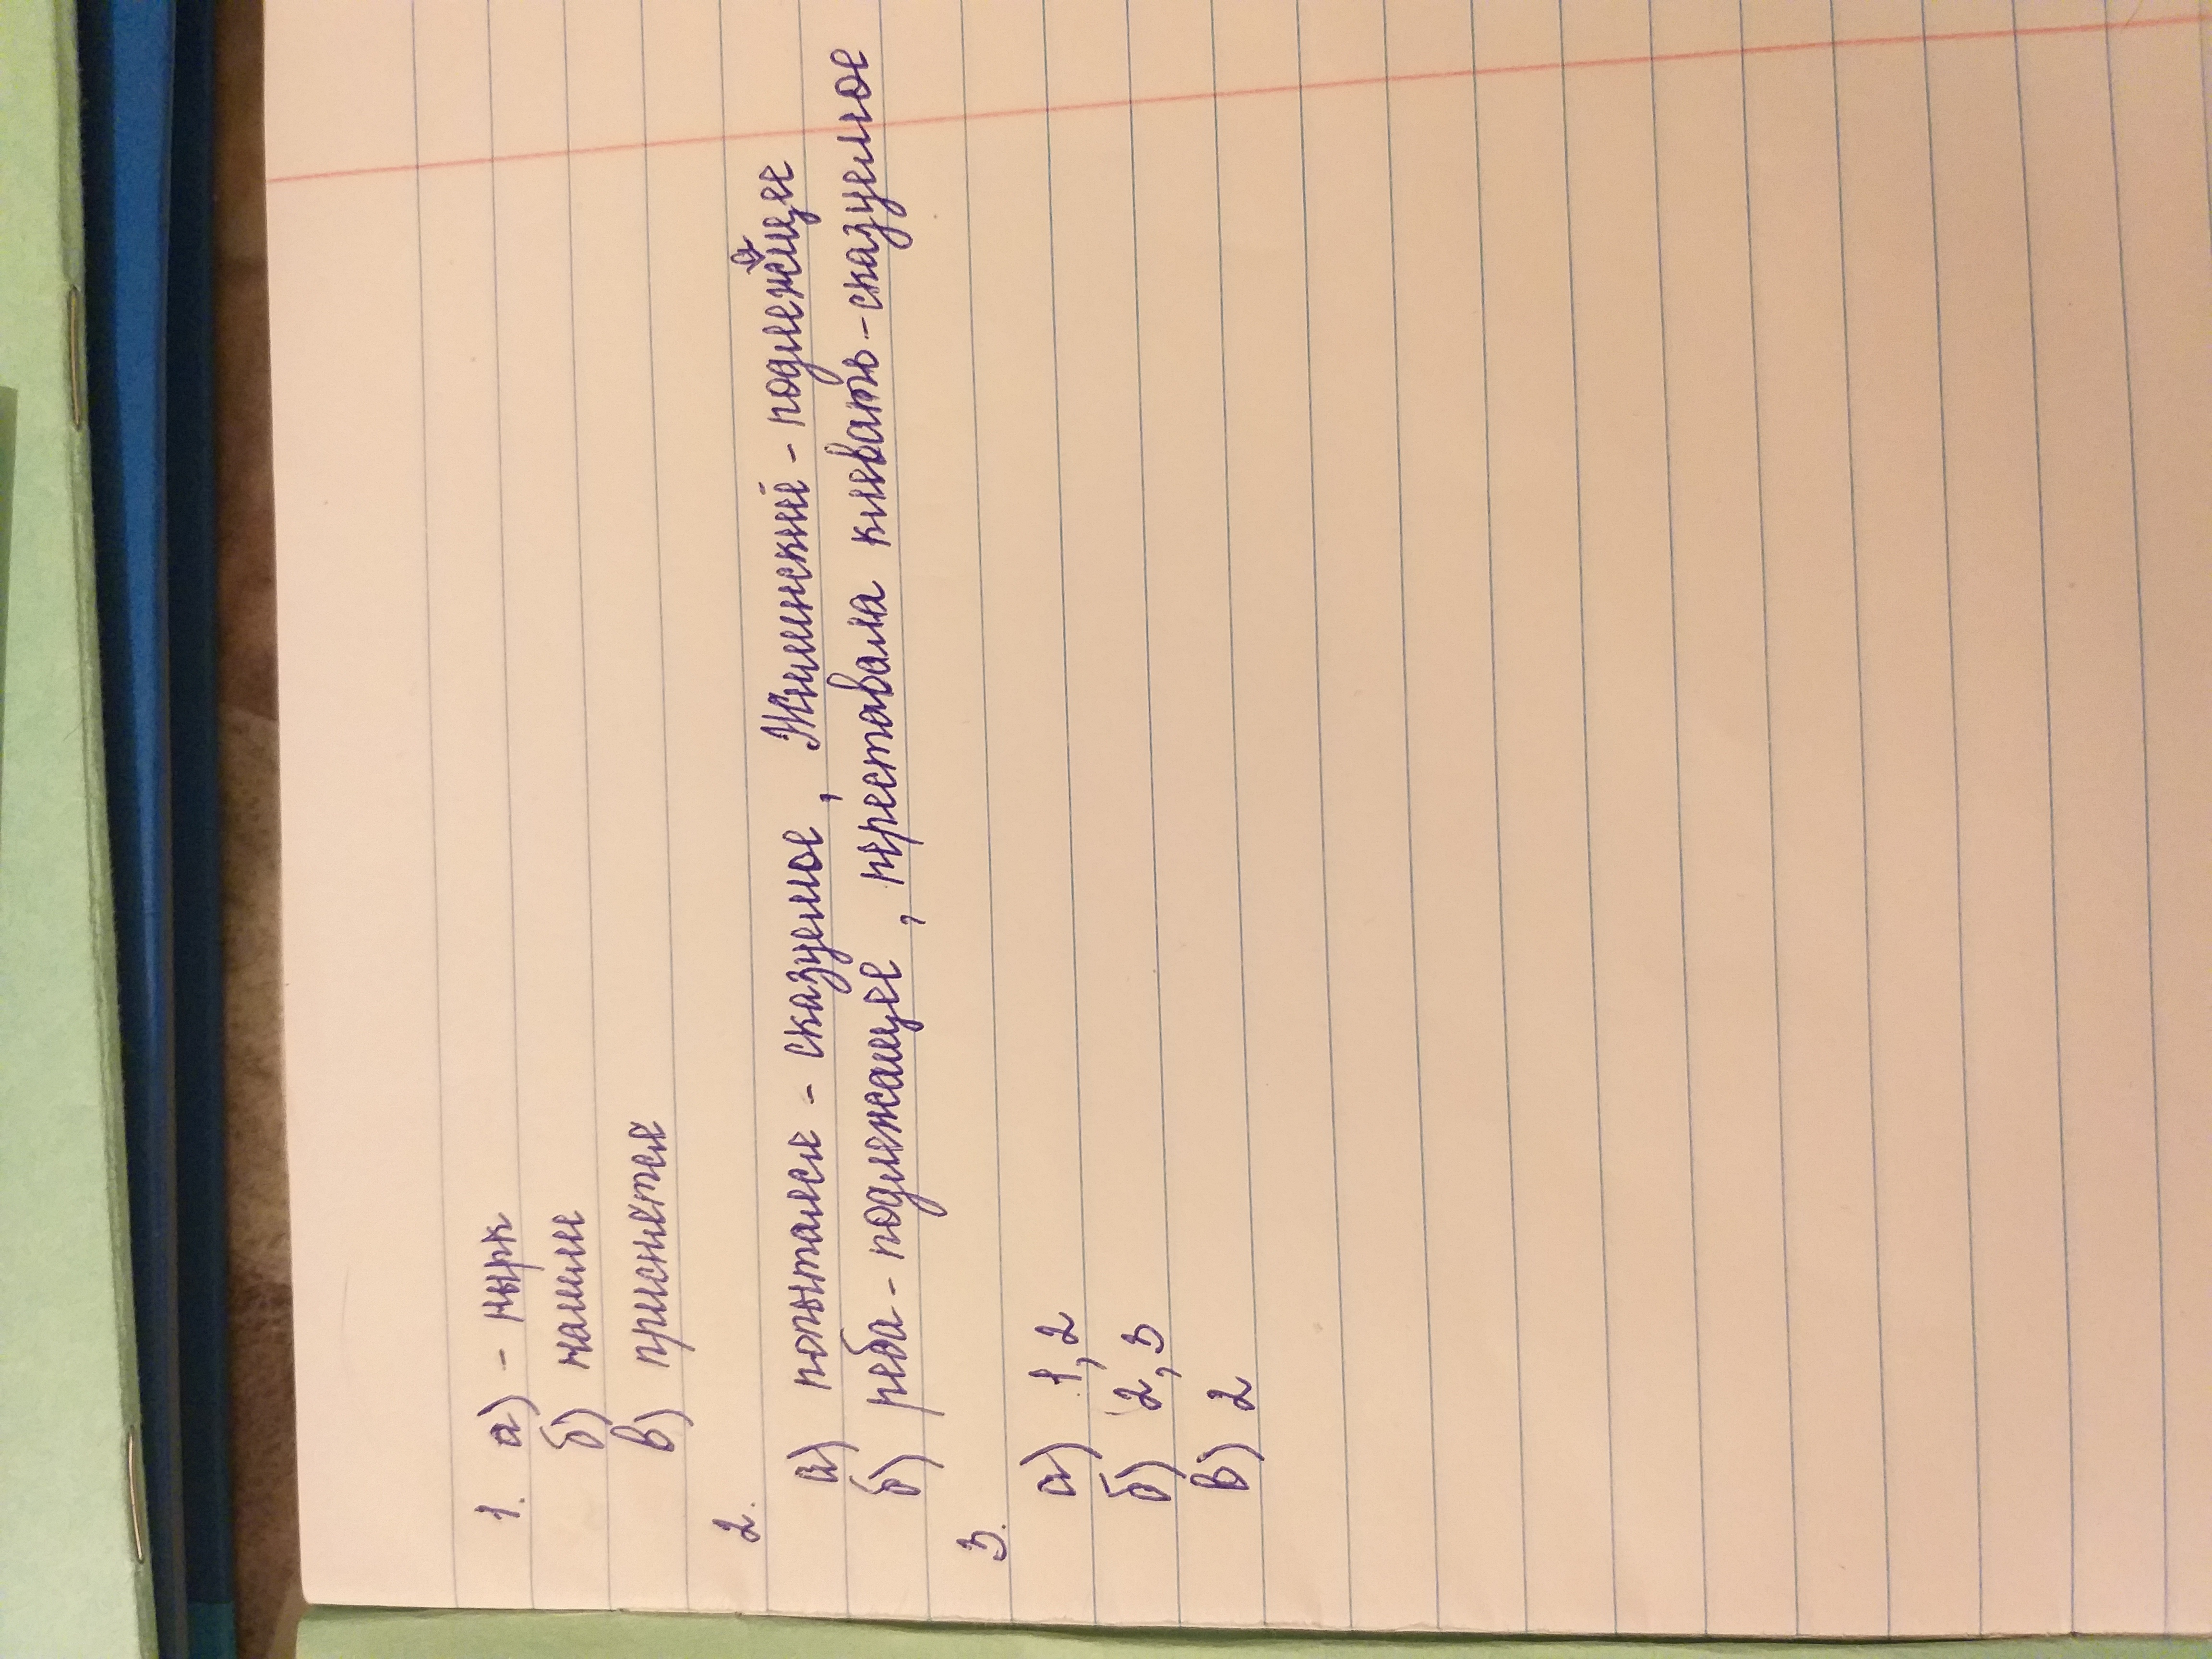 1. а) - нырк
б) нашли
в) приснится
2.
а) попытался - сказуемое, Жилинский - подлежащее
б) реба - подлежащее, переставала клевать - сказуемое
3.
а) 1, 2
б) 2, 3
в) 2